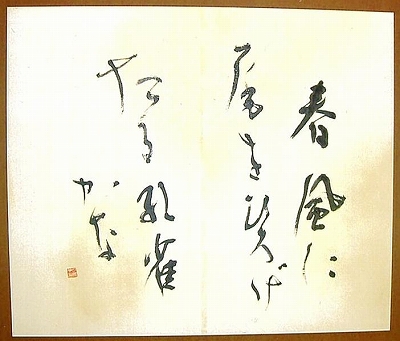 春風に
尾をひろげ
たる孔雀
かな